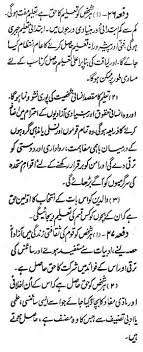 دفعہ ۲۶ - (۱) ہر شخص کو تعلیم کا حق ہے تعلیم مفت ہوگی،
کم سے کم ابتدائی اور بنیادی درجوں میں۔ ابتدائی تعلیم جبری
ہوگی۔ فنی اور پیشہ ورانہ تعلیم حاصل کرنے کا عام انتظام کیا
جائے گا اور لیاقت کی بنا پر اعلیٰ تعلیم حاصل کرنا سب کے لئے
مساوی طور پر ممکن ہوگا۔
(۲) تعلیم کا مقصد انسانی شخصیت کی پوری نشوونما ہوگا،
اور وہ انسانی حقوق اور بنیادی آزادیوں کے احترام میں اضافہ
کرنے کا ذریعہ ہوگی۔ وہ تمام قوموں اور نسلی یا مذہبی گروہوں کے
درمیان باہمی مفاہمت، رواداری اور دوستی کو
ترقی دے گی اور امن کو برقرار رکھنے کے لئے اقوام متحدہ
کی سرگرمیوں کو آگے بڑھائے گی۔
(۳) والدین کو اس بات کے انتخاب کا اولین حق
ہے کہ ان کے بچوں کو کس قسم کی تعلیم دی جائے گی۔
دفعہ ۲۷ - (۱) ہر شخص کو قوم کی ثقافتی زندگی میں آزادانہ
حصہ لینے، ادبیات سے مستفید ہونے اور سائنس کی
ترقی اور اس کے فوائد میں شرکت کا حق حاصل ہے۔
(۲) ہر شخص کو حق حاصل ہے کہ اس کے ان اخلاقی
اور مادی مفاد کا بچاؤ کیا جائے جو اسے ایسی سائنسی، علمی
یا ادبی تصنیف سے جس کا وہ مصنف ہے، حاصل ہوتے
ہیں۔